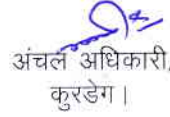 अंचल अधिकारी,
कुरडेग।